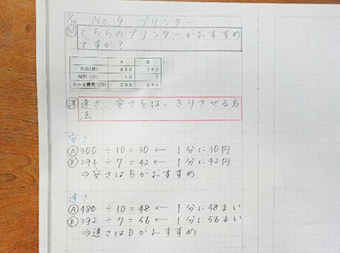 No.9 プリンター
どちらのプリンターがおすすめ
ですか?
A B
枚数(枚) 480 392
時間(分) 10 7
かかる費用(円) 300 294
速さ、安さをは、きりさせる方
法
安さ
Ⓐ300 ÷ 10 = 30 ← 1分に30円
Ⓑ294 ÷ 7 = 42 ← 1分に42円
⇒安さはBがおすすめ
速さ
Ⓐ480 ÷ 10 = 48 ← 1分に48まい
Ⓑ392 ÷ 7 = 56 ← 1分に56まい
⇒速さはBがおすすめ